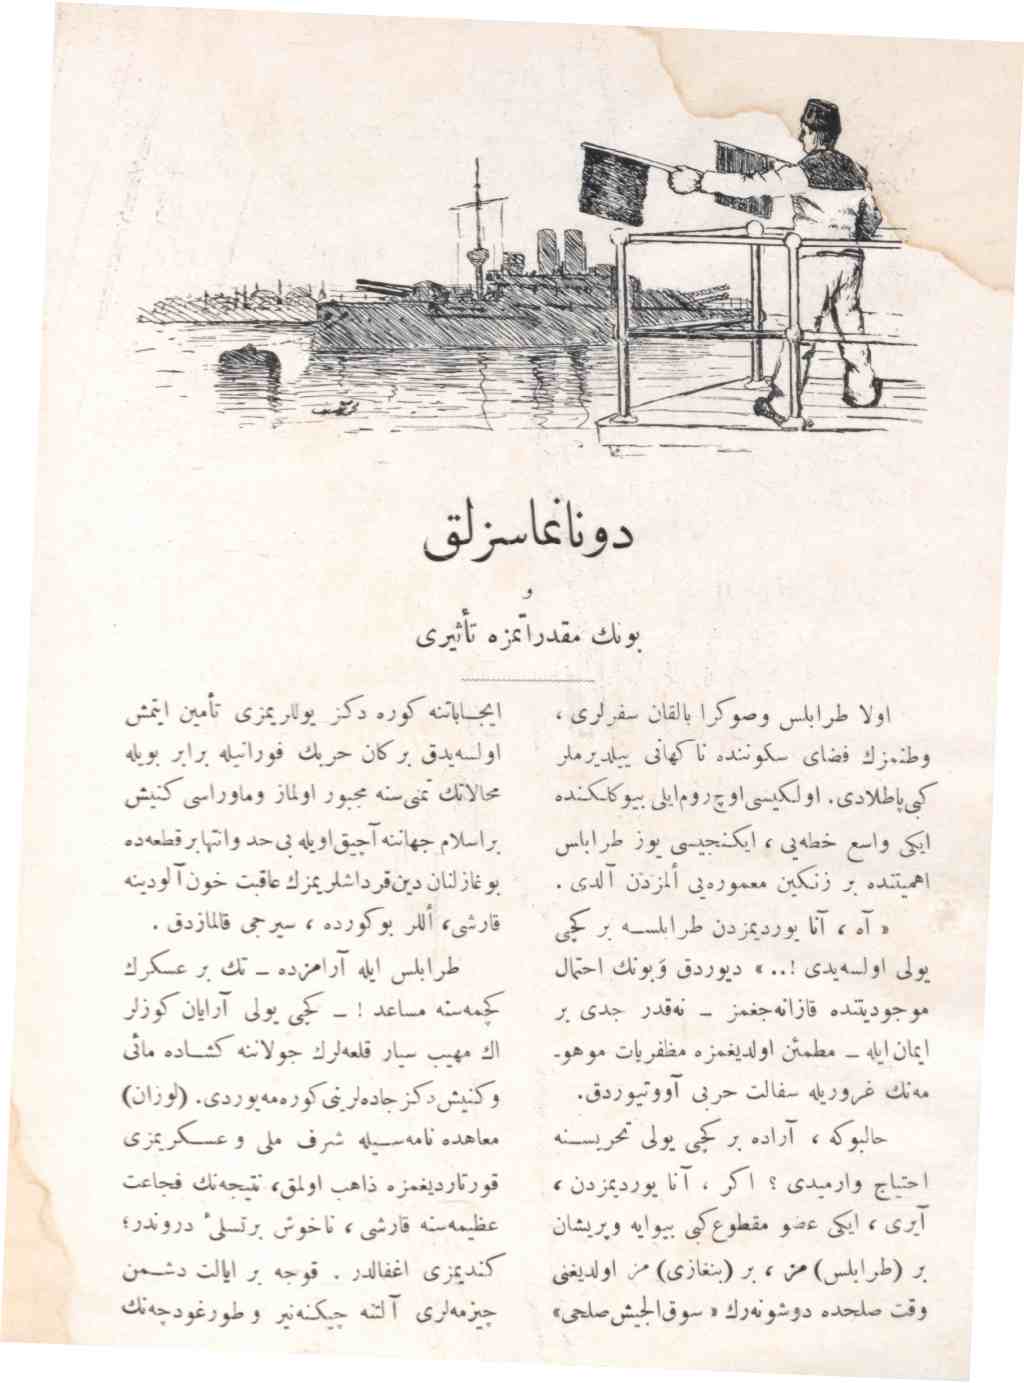 دونانماسزلق
و
بونك مقدراتمزه تأثيرى
اولا طرابلس وصوكرا بالقان سفرلرى ،
وطنمزك فضاى سكوننده ناكهانى ييلديرملر
كبى پاطلادى. اولكيسى اوچ روم ايلى بيوكلكنده
ايكى واسع خطه‌يى ، ايكنجيسى يوز طرابلس
اهميتنده بر زنكين معموره‌يى ألمزدن آلدى .
« آه ، آنا يورديمزدن طرابلسه بر كچى
يولى اولسه‌يدى !.. » ديوردق وَبونك احتمال
موجوديتنده قازانه‌جغمز ـ نه‌قدر جدى بر
ايمان ايله ـ مطمئن اولديغمزه مظفريات موهو-
مه‌نك غروريله سفالت حربى آووتيوردق.
حالبوكه ، آراده بر كچى يولى تحريسنه
احتياج وارميدى ؟ اكر ، آنا يورديمزدن ،
آيرى ، ايكى عضو مقطوع كبى بيوايه وپريشان
بر (طرابلس) مز ، بر (بنغازى) مز اولديغنى
وقت صلحده دوشونه‌رك « سوق الجيش صلحى»
ايجاباتنه كوره دكز يوللريمزى تأمين ايتمش
اولسه‌يدق بركان حربك فورانيله برابر بويله
محالاتك تمنى‌سنه مجبور اولماز وماوراسى كنيش
براسلام جهاننه آچيق اويله بى‌حد وانتها بر قطعه‌ده
بوغازلنان دين‌قرداشلريمزك عاقبت خون آلودينه
قارشى، أللر بوكورده ، سيرجى قالمازدق .
طرابلس ايله آرامزده ـ تك بر عسكرك
كچمه‌سنه مساعد ! ـ كچى يولى آرايان كوزلر
اك مهيب سيار قلعه‌لرك جولاننه كشاده مائى
وكنيش دكز جاده‌لرينى كوره‌مه‌يوردى. (لوزان)
معاهده نامه‌سيله شرف ملى و عسكريمزى
قورتارديغمزه ذاهب اولمق، نتيجه‌نك فجاعت
عظيمه‌سنه قارشى ، ناخوش برتسلىٔ دروندر؛
كنديمزى اغفالدر . قوجه بر ايالت دشمن
چيزمه‌لرى آلتنه چيكنه‌نير و طورغودجه‌نك